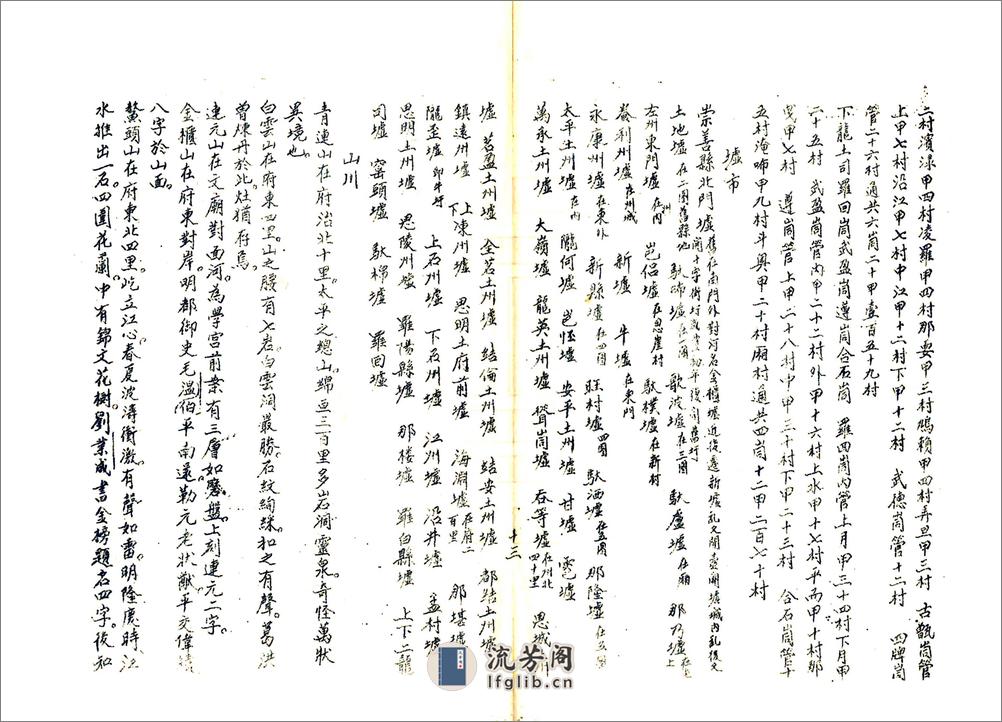 二村濱淥甲四村凌羅甲四村那娄甲三村鵰賴甲四村弄旦甲三村 古甑崗管
上甲七村沿江甲七村中江甲十二村下甲十二村 武德崗管十二村 四牌崗
管二十六村通共六崗二十甲壹百五十九村
下龍土司羅回崗武盈崗遵崗合石崗 羅四崗內管上月甲三十四村下月甲
二十五村 武盈崗管內甲二十二村外甲十六村上水甲十七村平而甲十村那
甲七村 遵崗管上甲二十八村中甲三十村下甲二十三村 合石崗管
五村淹甲九村斗奥甲二十村厢村通共四崗十二甲二百七十村
墟市
崇善縣北門墟
土地墟 在二圖舊縣地 馱佈墟 歌波墟 在三圖 馱盧墟 那乃墟
左州東門墟 在州內 邑侣墟 在思崖村 馱樸墟 在新村
養利州墟 在州城 新墟 牛墟 在東門
永康州墟 在東外 新縣墟 在四圖 旺村墟 四圖 馱洒墟 那隆墟
太平土州墟 在內 隴何墟 邑怪墟 安平土州墟 甘墟 雹墟
萬承土州墟 大嶺墟 龍英土州墟 聳崗墟 吞等墟 在州北四十里 思城州
墟 茗盈土州墟 全茗土州墟 結倫土州墟 結安土州墟 都結土州墟
鎮遠州墟 上下凍州墟 思明土府前墟 海淵墟 在府二百里 那堪墟
隴盃墟 即牛圩 上石州墟 下石州墟 江州墟 沿井墟 孟村墟
思明土州墟 思陵州墟 羅陽縣墟 那楼墟 羅白縣墟 上下二龍
司墟 窑頭墟 馱棉墟 羅回墟
山川
青連山在府治北十里太平之總山綿亘三百里多岩洞靈泉奇怪萬狀
異境也
白雲山在府東四里山之腰有七岩白雲洞最勝石紋絢綵扣之有聲葛洪
曾煉丹於此灶猶存焉
連元山在文廟對西河為學宫前案有三層如磨盤上刻連元二字
金櫃山在府東對岸明都御史毛温伯平南還勒元老壯猷平交偉績
八字於山面
鰲頭山在府東北四里屹立江心春夏波濤衝激有聲如雷明隆慶時江
水推出一石四圍花蘭中有錦文花樹劉業成書金榜題名四字後知
十三
流芳阁
lfglib.cn